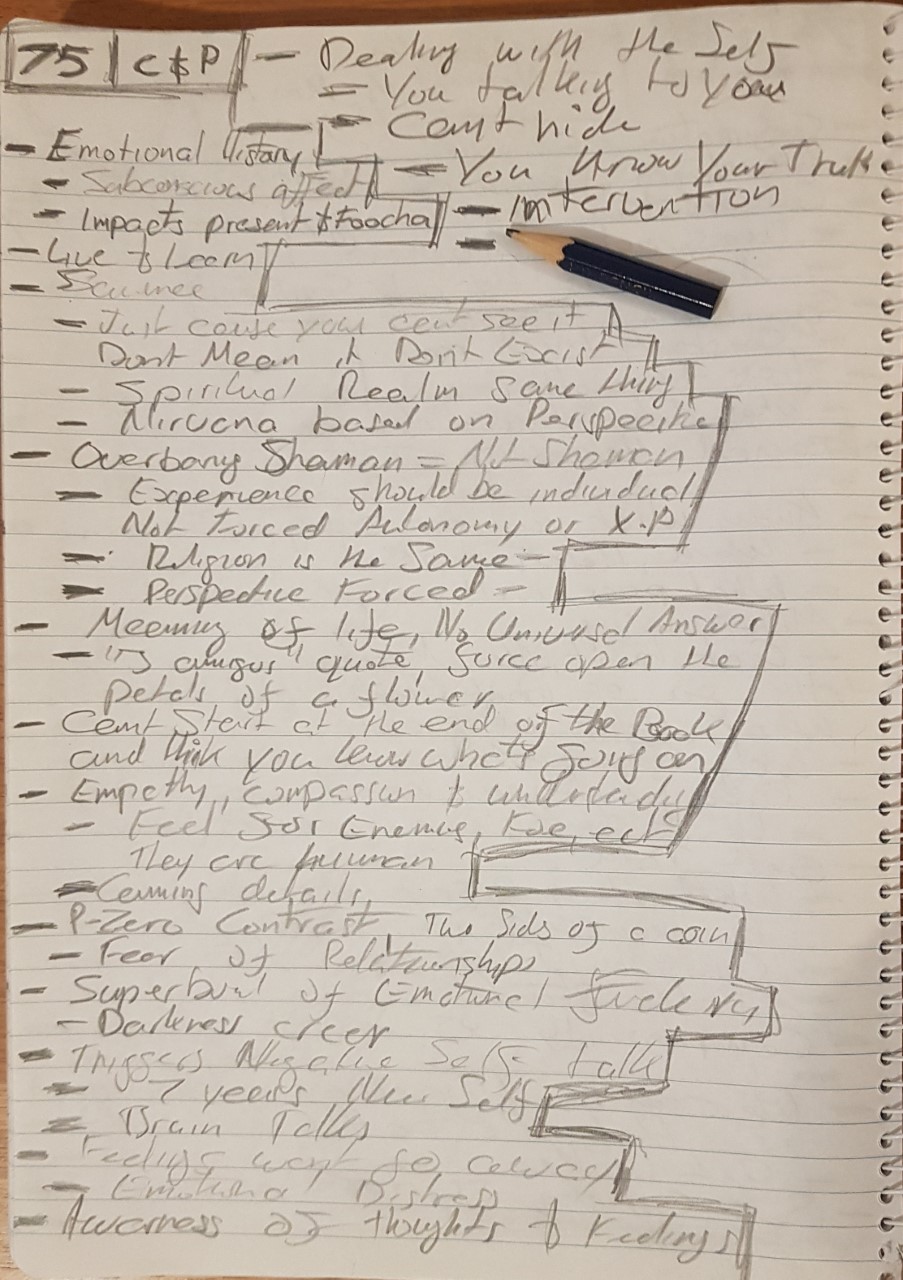 75 | C & P
- Dealing with the Self
= You talking to you
- Cant hide
- You Know Your Truth
- Intervention
- Emotional History
- Subconscious affect
- Impacts present & Foocha
- Live & Learn
- Science
- Just cause you cant see it
Dont Mean it Don't Exist
- Spiritual Realm same thing
- Nirvana based on Perspective
- Overbang Shaman = Not Shaman
- Experience should be individual
Not Forced Autonomy or X.P
- Religion is the Same -
- Perspective Forced -
- Meaning of life, No Universal Answer
- "3 amigos" quote, force open the
petals of a flower
- Cant Start at the end of the Book
and think you know what's going on
- Empathy, compassion &
- Feel for Enemies, Foe, ect
They are human
- details,
- P-Zero Contrast, Two Sids of a coin
- Fear of Relationships
- Superbowl of Emotional Fuckery
- Darkness creep
- Triggers Negative Self talk
- 7 years New Self
- Brain Talks
- Feelings wont go away
- Emotional Distress
- Awarness of thoughts & Feelings